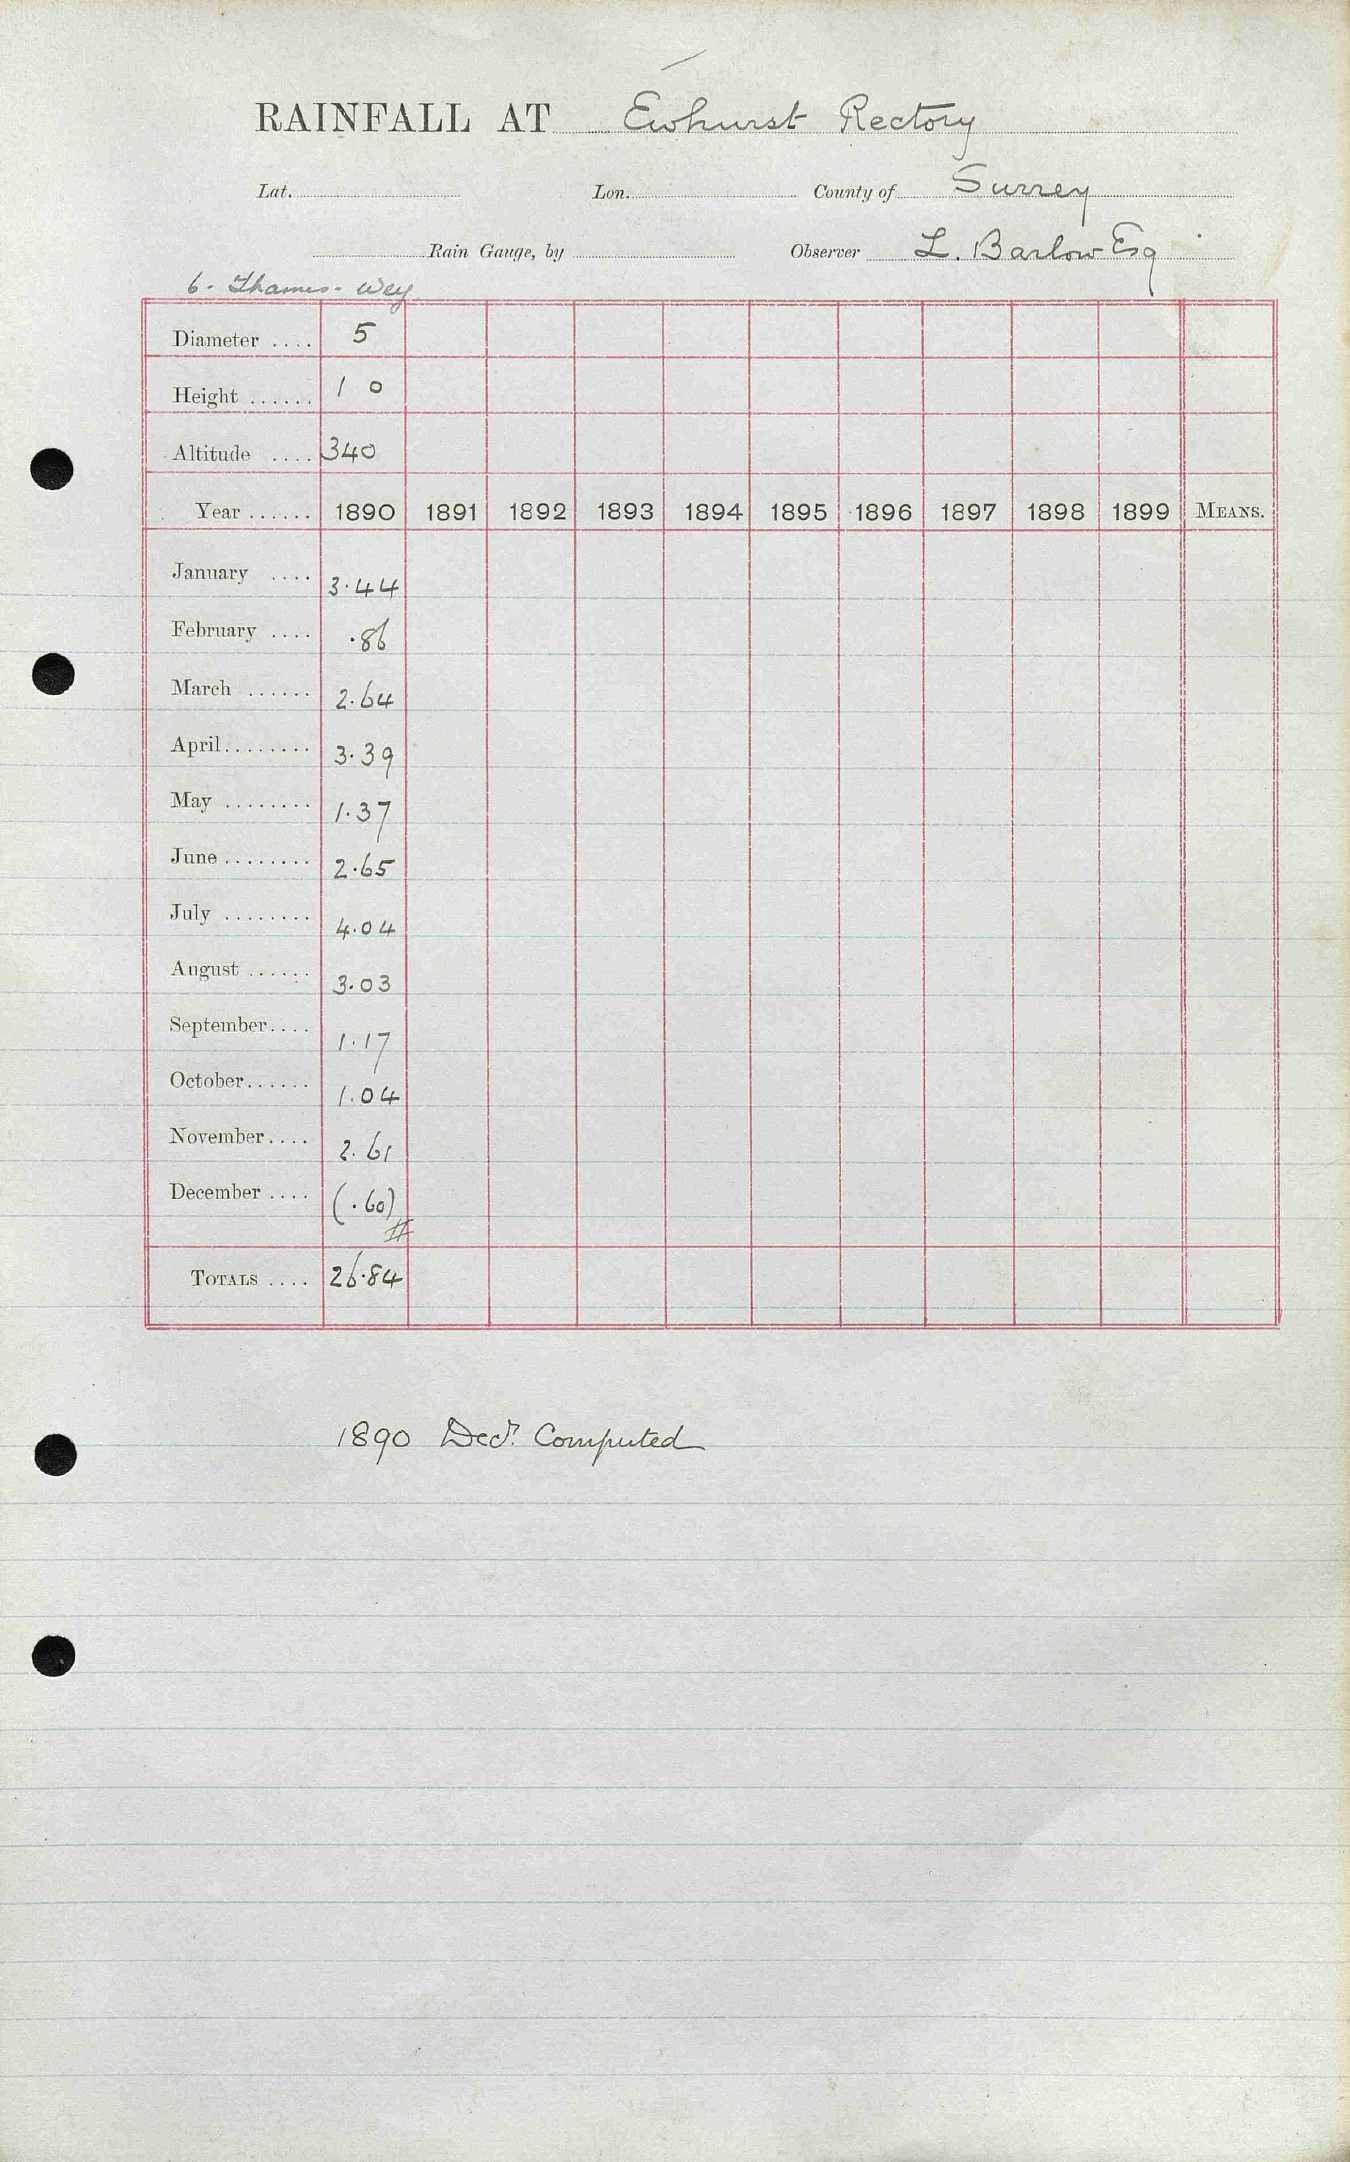 RAINFALL AT Ewhurst Rectory
Lat. Lon. County of Surrey
Rain Gauge, by Observer L. Barlow Esq
6. Thames - Wey
Diameter .... 5
Height ...... 1 0
Altitude .... 340
Year ...... 1890 1891 1892 1893 1894 1895 1896 1897 1898 1899 MEANS.
January .... 3.44
February .... .86
March ...... 2.64
April........ 3.39
May ........ 1.37
June ........ 2.65
July ........ 4.04
August ...... 3.03
September.... 1.17
October...... 1.04
November.... 2.61
December .... (.60)
#
TOTALS .... 26.84
1890 Decr. Computed